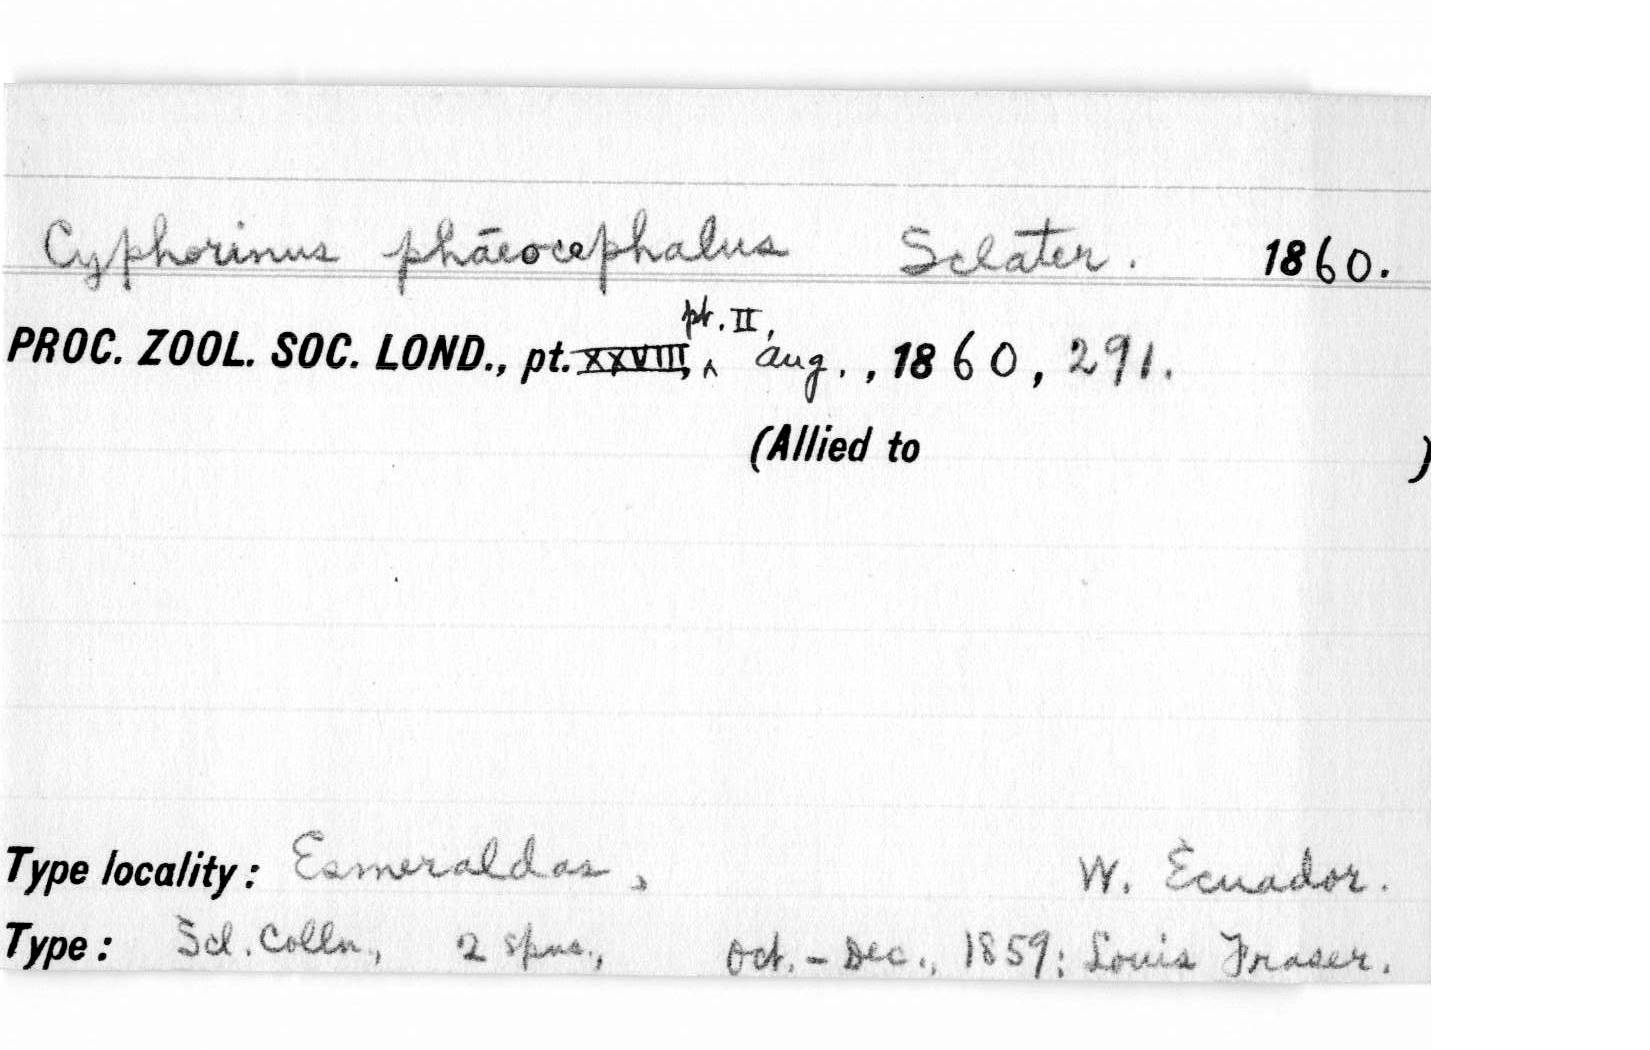 Cyphorinus phaeocephalus Sclater. 1860.
pt. II,
PROC. ZOOL. SOC. LOND., pt. XXVIII, ^ Aug., 1860, 291.
(Allied to )
Type locality: Esmeraldas, W. Ecuador.
Type: Scl. Colln., 2 spns., Oct. - Dec., 1859: Louis Fraser.